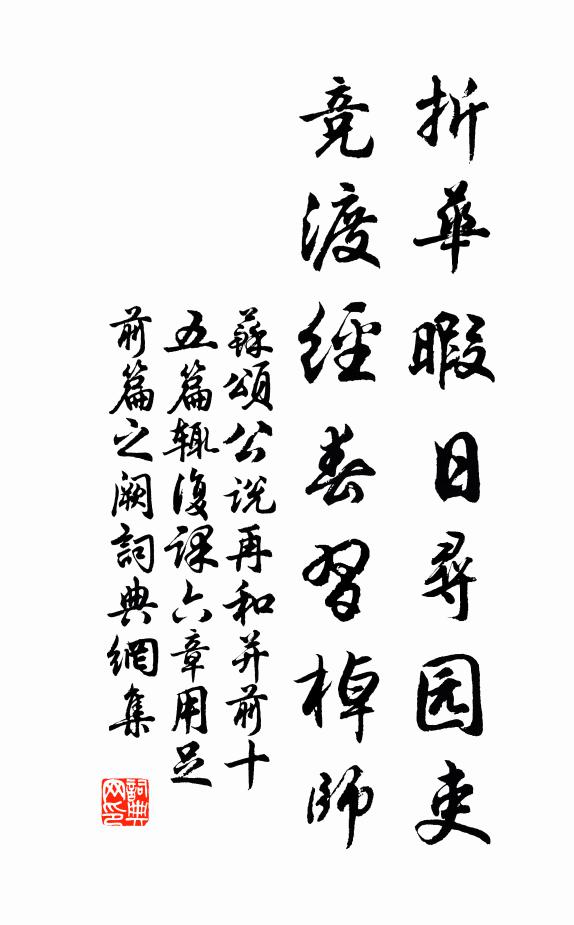 折華暇日尋园吏
竞渡經春習棹師
蘇頌公說再和并前十
五篇辄復課六章用足
前篇之阙詞典網集
詞典网印